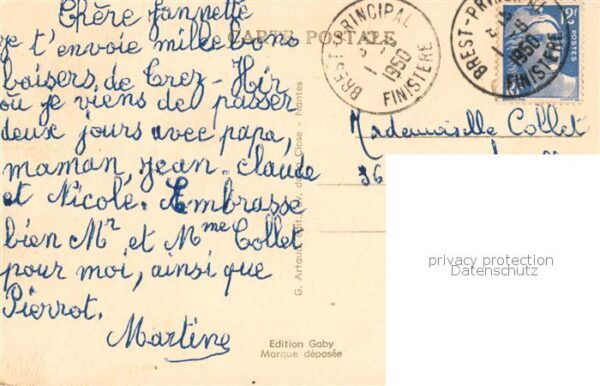 Chère Jannette
je t'envoie mille bons
baisers de Trez-Hir
où je viens de passer
deux jours avec papa,
maman, Jean-Claude
et Nicole. Embrasse
bien Mr et Mme Collet
pour moi, ainsi que
Pierrot.
Martine
CARTE POSTALE
BREST-PRINCIPAL
1950
FINISTERE
BREST-PRINCIPAL
1950
FINISTERE
12F
POSTES
Mademoiselle Collet
36
G. Artaud
Close - Nantes
Edition Gaby
Marque déposée
privacy protection
Datenschutz